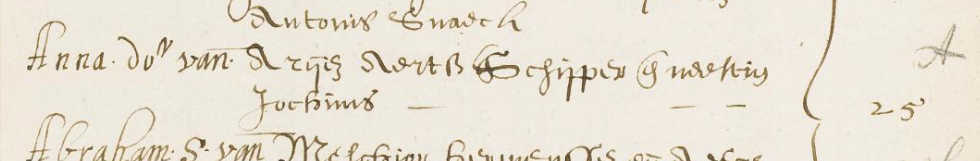 Antonis Snaeck
Anna. dor van. Arijs Aertß Schipper & neeltin
Jochims — — —
25
A
Abraham. S. van Melchior